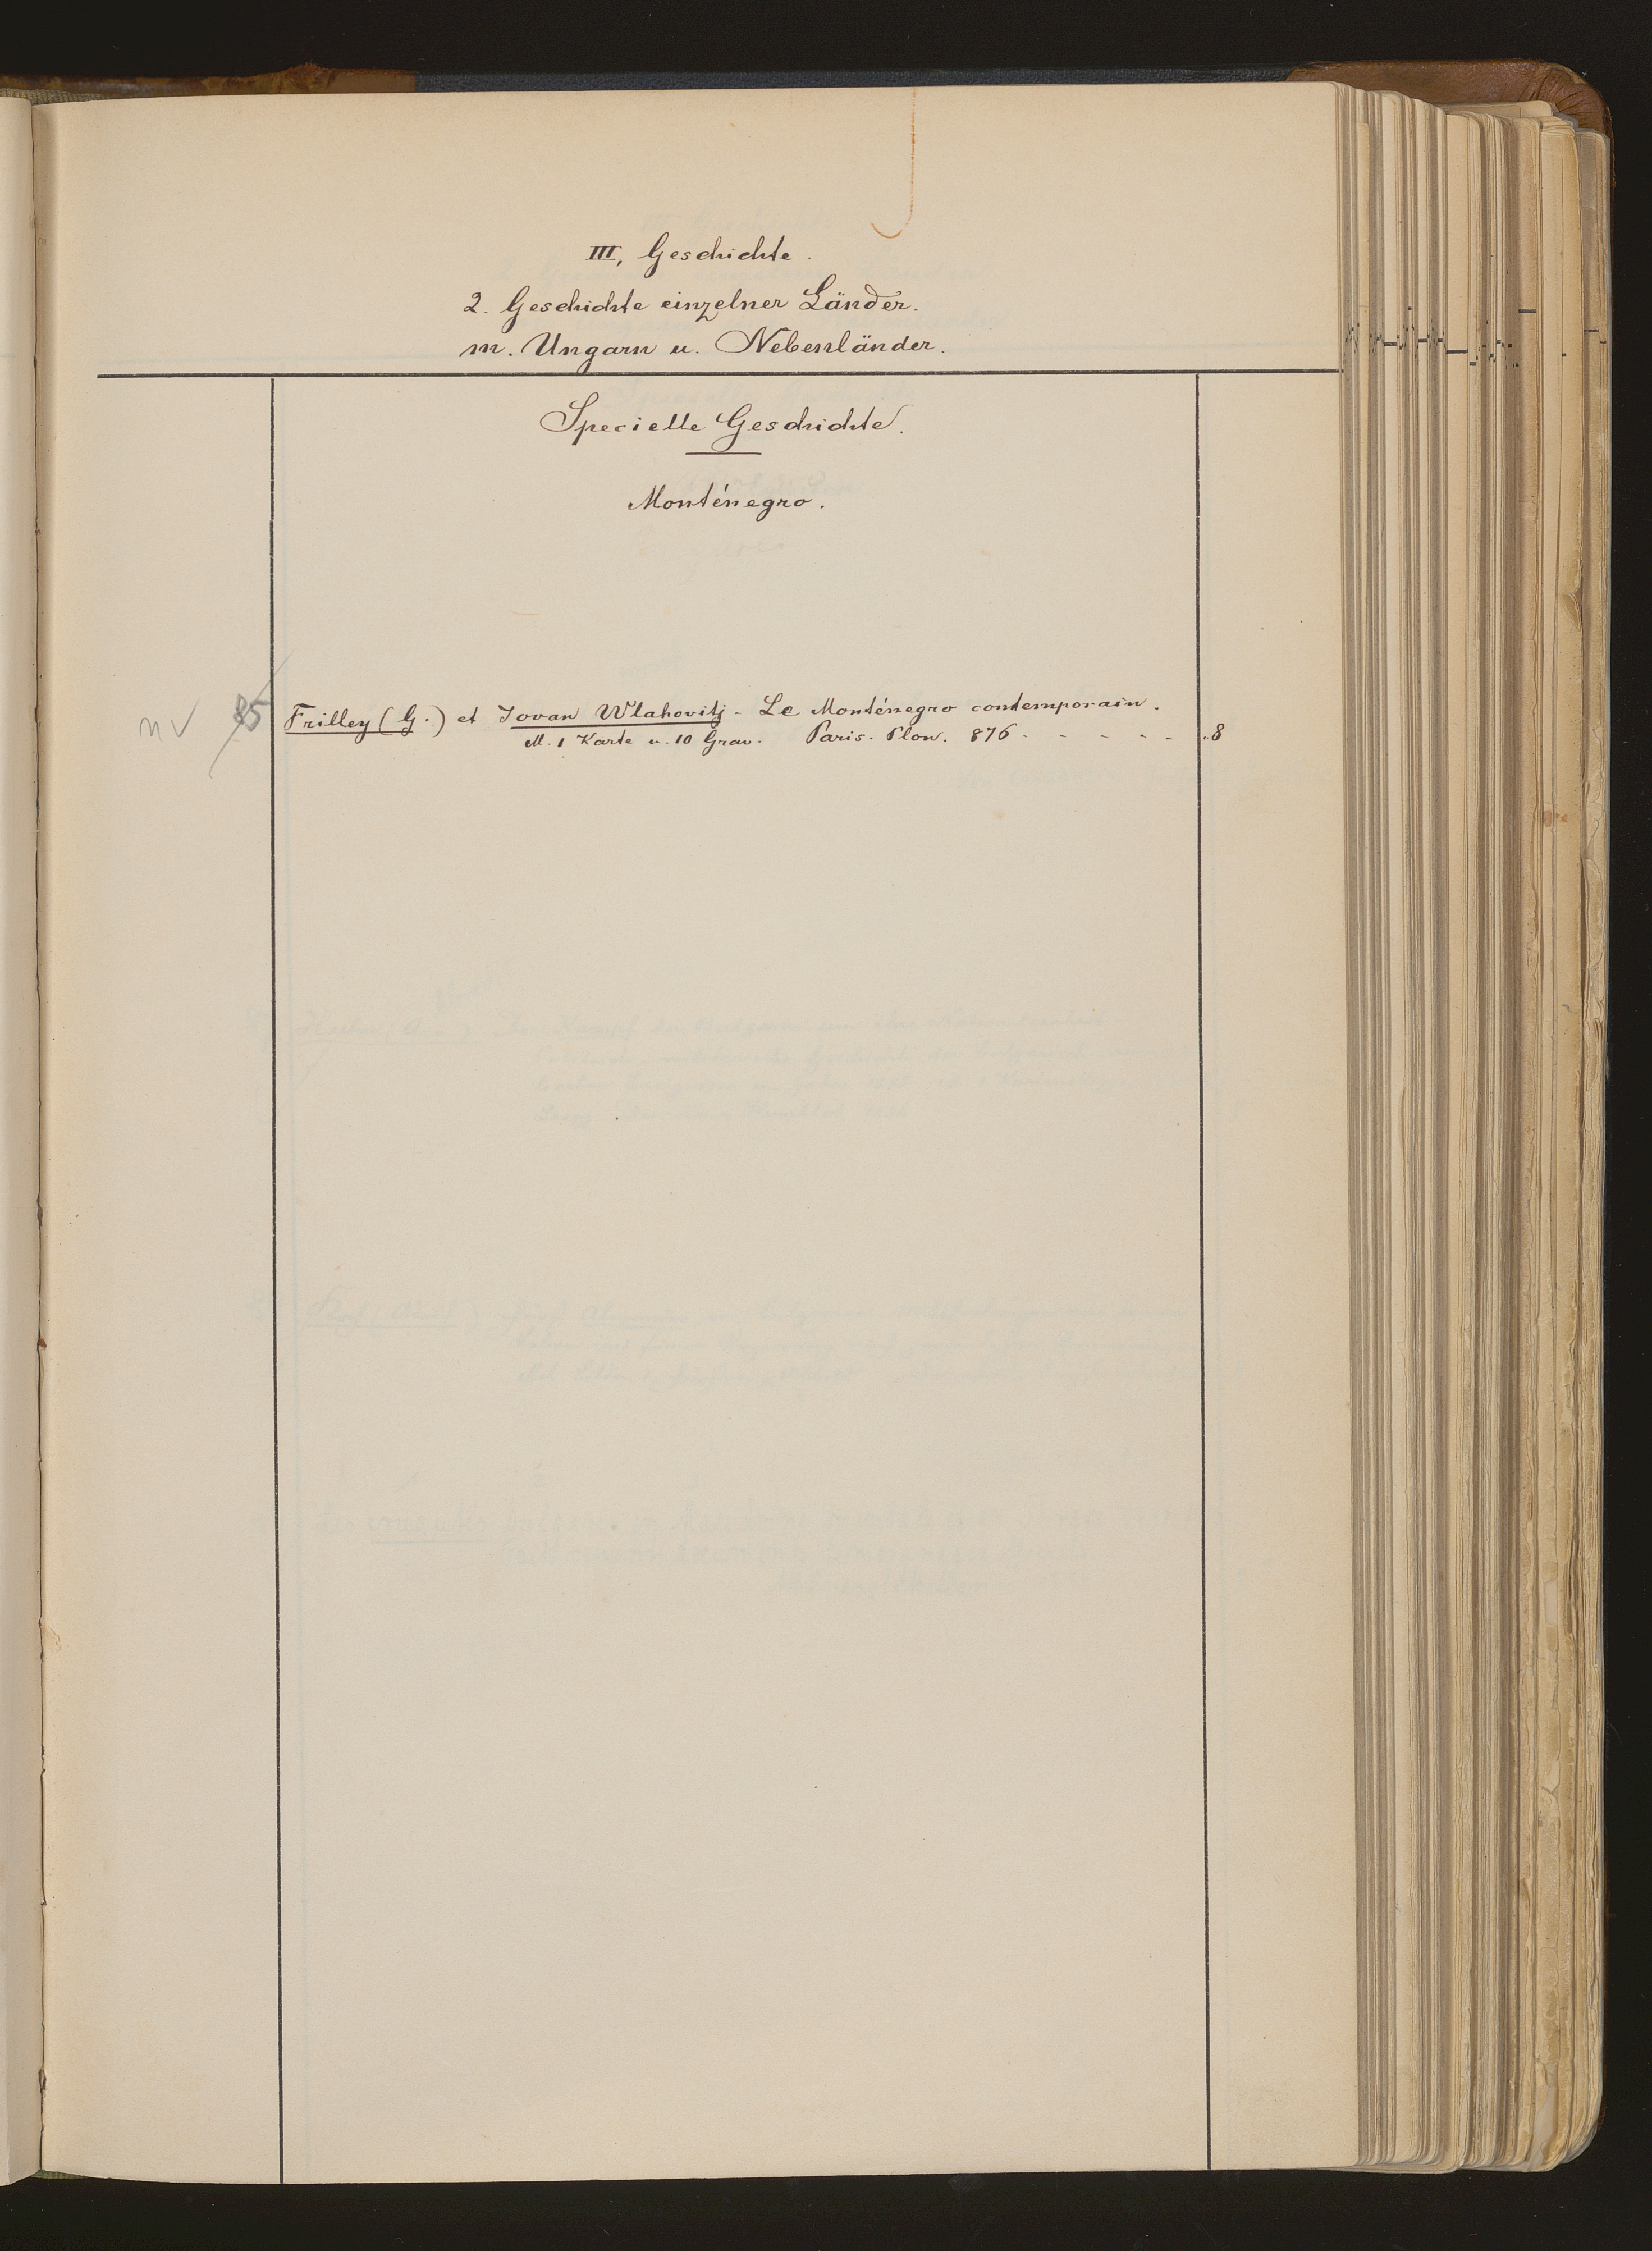 III, Geschichte.
2. Geschichte einzelner Länder.
m. Ungarn u. Nebenländer.
Specielle Geschichte.
Monténegro.
nv 85 Frilley (G.) et Jovan Wlahovitj - Le Monténegro contemporain.
M. 1 Karte u. 10 Grav. Paris. Plon. 876 - - - - - 8